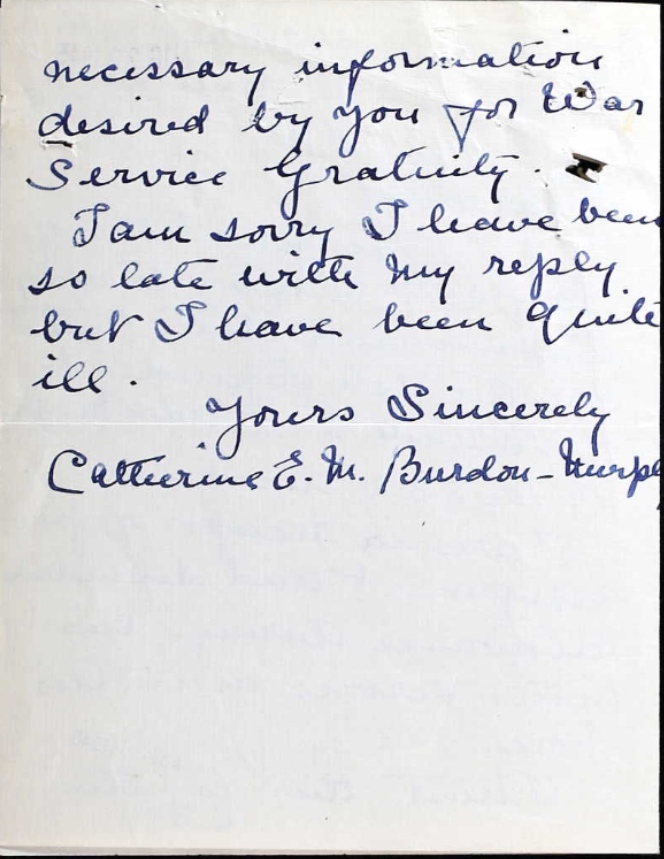 necessary information
desired by you for War
Service Gratuity.
I am sorry I have been
so late with my reply
but I have been quite
ill.
Yours Sincerely
Catherine E. M. Burdon-Murph